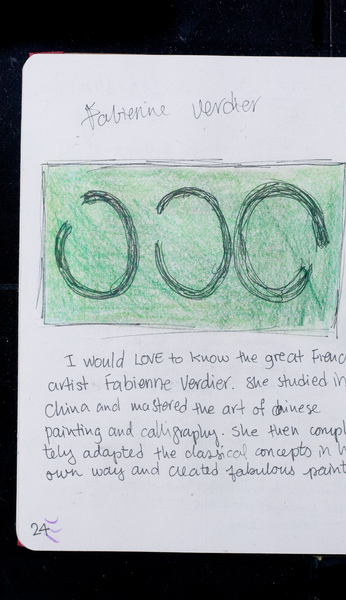 Fabienne Verdier
I would LOVE to know the great Frenc
artist Fabienne Verdier. She studied in
China and mastered the art of chinese
painting and calligraphy. She then compl
tely adapted the classical concepts in h
own way and created fabulous paint
24